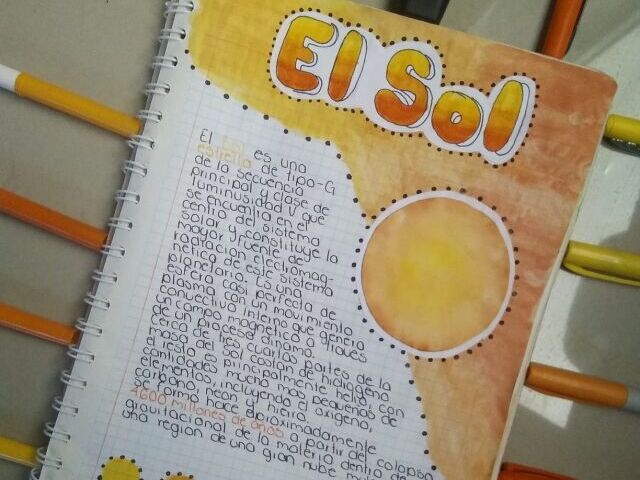 El Sol
El Sol es una
estrella de tipo-G
de la secuencia
principal y clase de
luminosidad V que
se encuentra en el
centro del sistema
solar y constituye la
mayor fuente de
radiación electromag-
nética de este sistema
planetario. Es una
esfera casi perfecta de
plasma, con un movimiento
convectivo interno que genera
un campo magnético a través
de un proceso dinamo.
Cerca de tres cuartas partes de la
masa del Sol constan de hidrógeno,
el resto es principalmente helio, con
cantidades mucho más pequeñas de
elementos, incluyendo el oxígeno,
carbono, neón y hierro.
Se formó hace aproximadamente
4600 millones de años a partir del colapso
gravitacional de la materia dentro de
una región de una gran nube